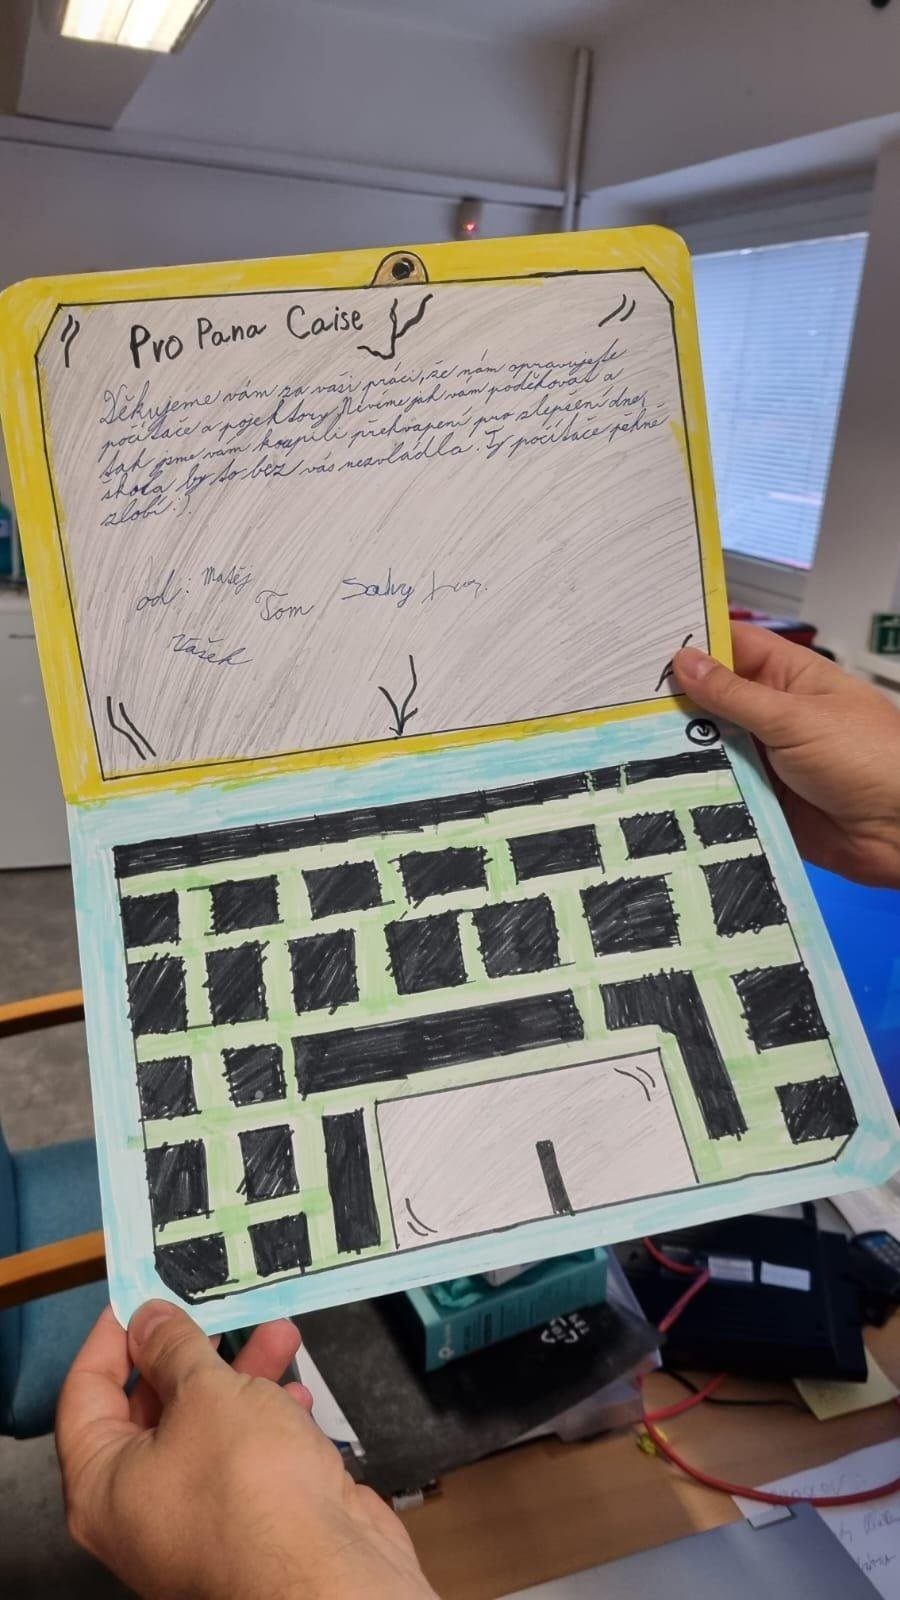 Pro Pana Caise
Děkujeme vám za vaši práci, že nám opravujete
počítače a pojektory. Nevíme jak vám poděkovat a
tak jsme vám koupili překvapení pro zlepšení dne,
škola by to bez vás nezvládla. Ty počítače pěkně
zlobí :).
od: Matěj
Tom
Vašek